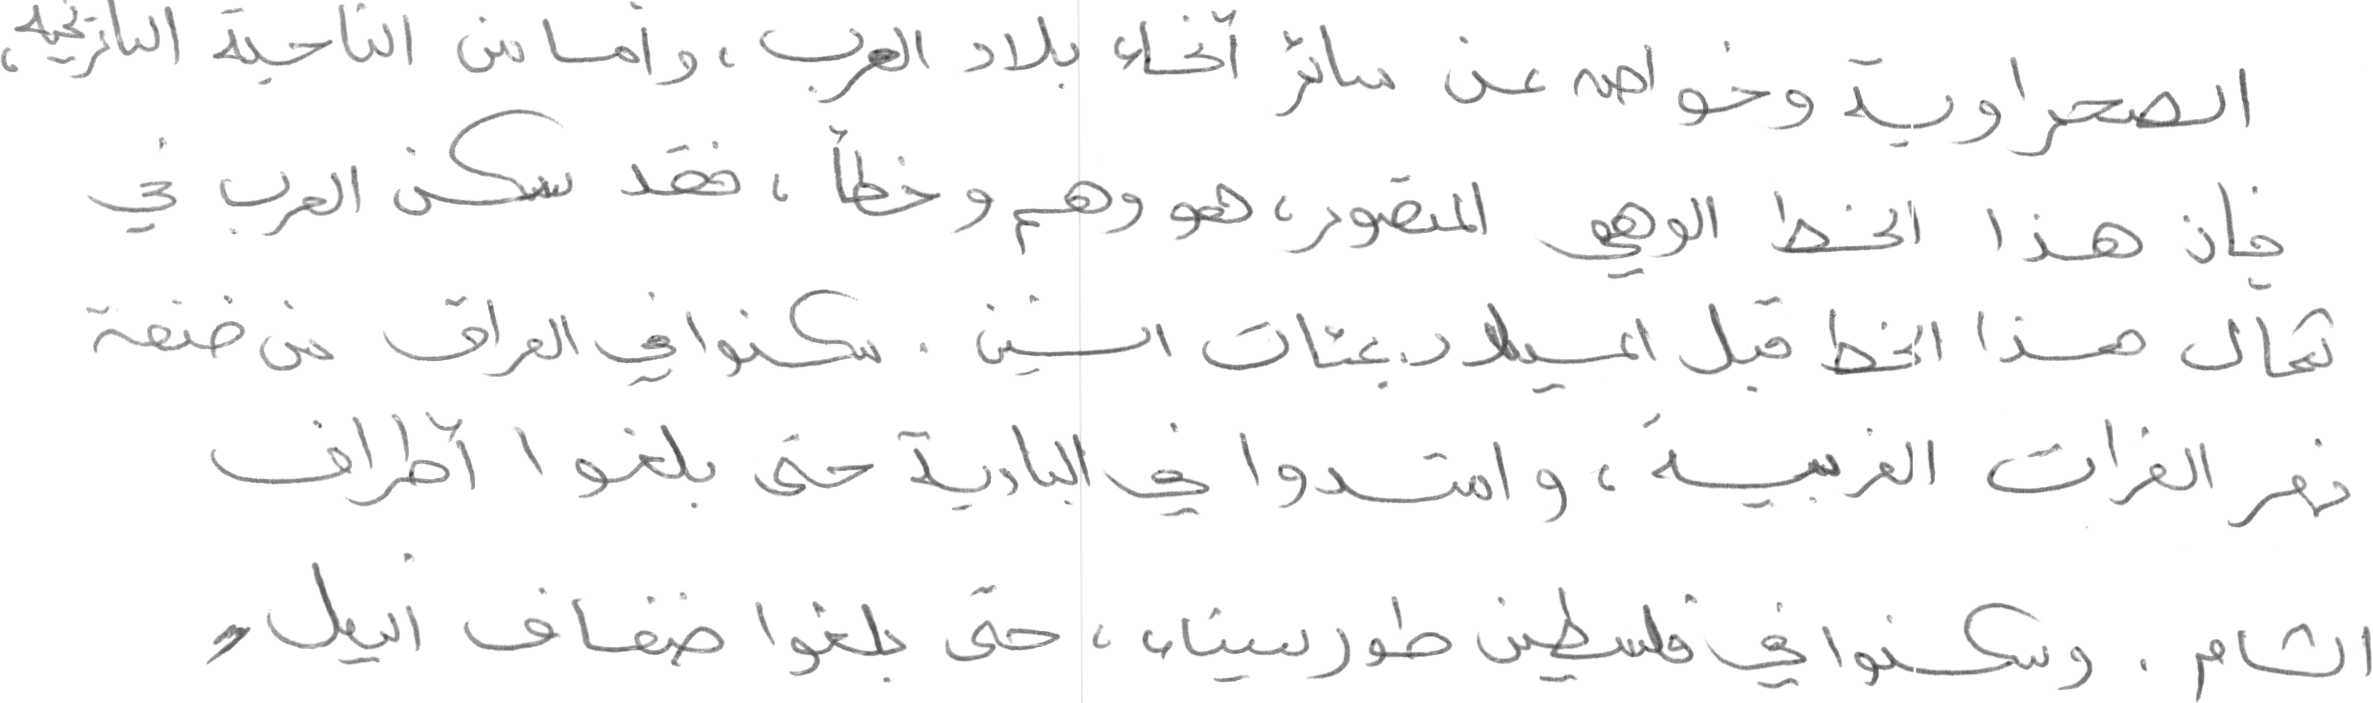 الصحراوية وخواصه عن سائر أنحاء بلاد العرب، وأما من الناحية التاريخية،
فإن هذا الخط الوهمي المتصور، هو وهم وخطأ، فقد سكن العرب في
شمال هذا الخط قبل الميلاد بمئات السنين. سكنوا في العراق من ضفة
نهر الفرات الغربية، وامتدوا في البادية حتى بلغوا أطراف
الشام. وسكنوا في فلسطين طور سيناء، حتى بلغوا ضفاف النيل